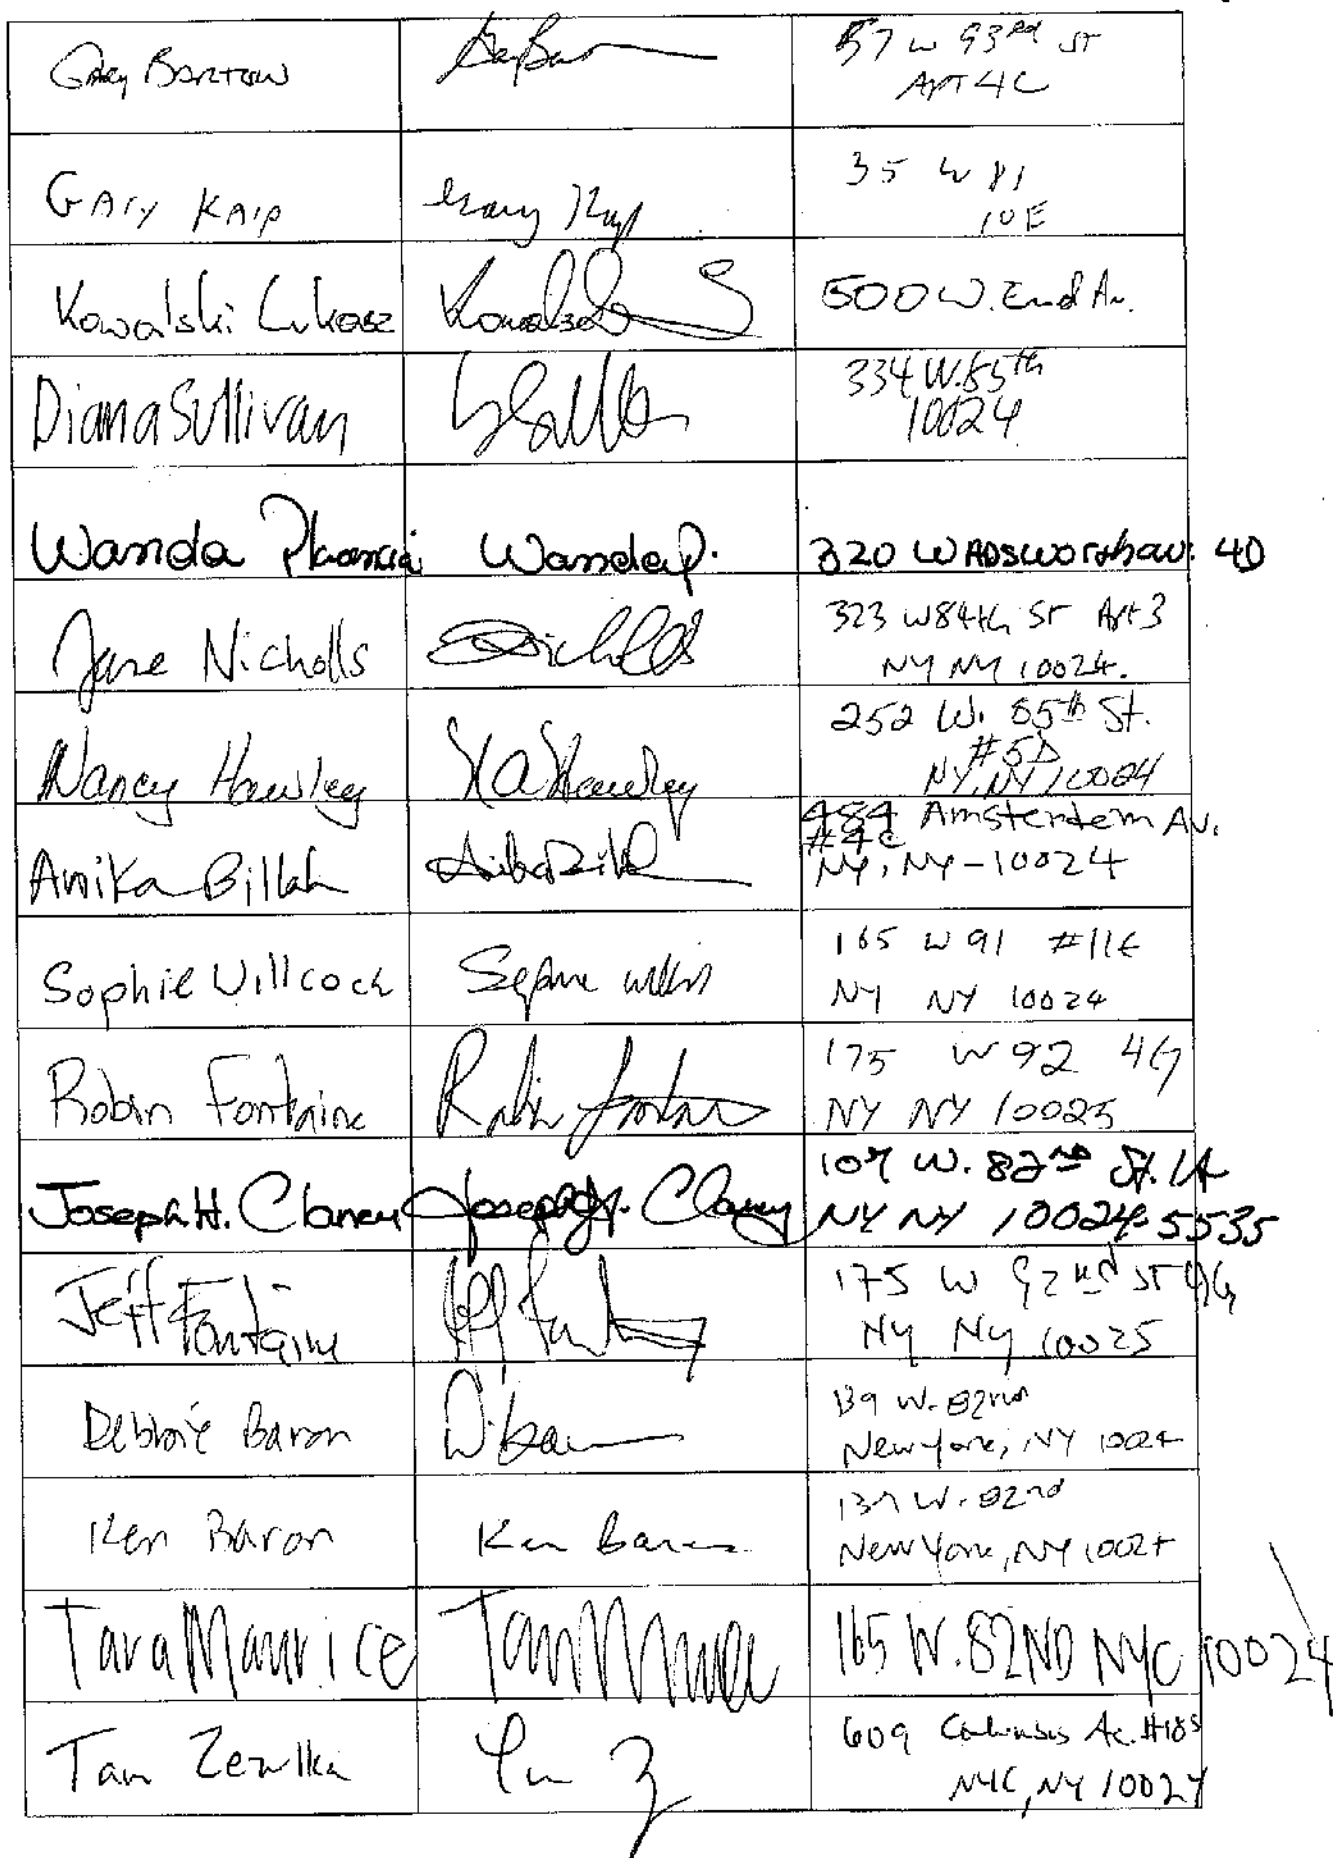 Gary Bartow 57 W 93rd ST
Apt 4C
Gary Kaip 35 W 81
10E
Kowalski Lukasz 500 W. End Av.
Diana Sullivan 334 W. 85th
10024
Wanda Wanda P. 320 Wadsworth av. 4D
Jane Nicholls Nicholls 323 W84th St Apt 3
NY NY 10024.
Nancy Hawley NA Hawley 252 W. 85th St.
#5D
NY, NY 10024
Anika Billah 484 Amsterdam Av.
#4C
NY, NY-10024
Sophie Willcock 165 W 91 #11E
NY NY 10024
Robin Fontaine Robin Fontaine 175 W 92 4G
NY NY 10025
Joseph H. Clancy Joseph H. Clancy 107 W. 82nd St. 1A
NY NY 10024-5535
Jeff Fontaine 175 W 92nd ST 4G
NY NY 10025
Debbie Baron 139 W. 82nd
New York, NY 10024
Ken Baron Ken Baron 139 W. 82nd
New York, NY 10024
Tara Maurice 165 W. 82ND NYC 10024
609 Columbus Av. #18S
NYC, NY 10024